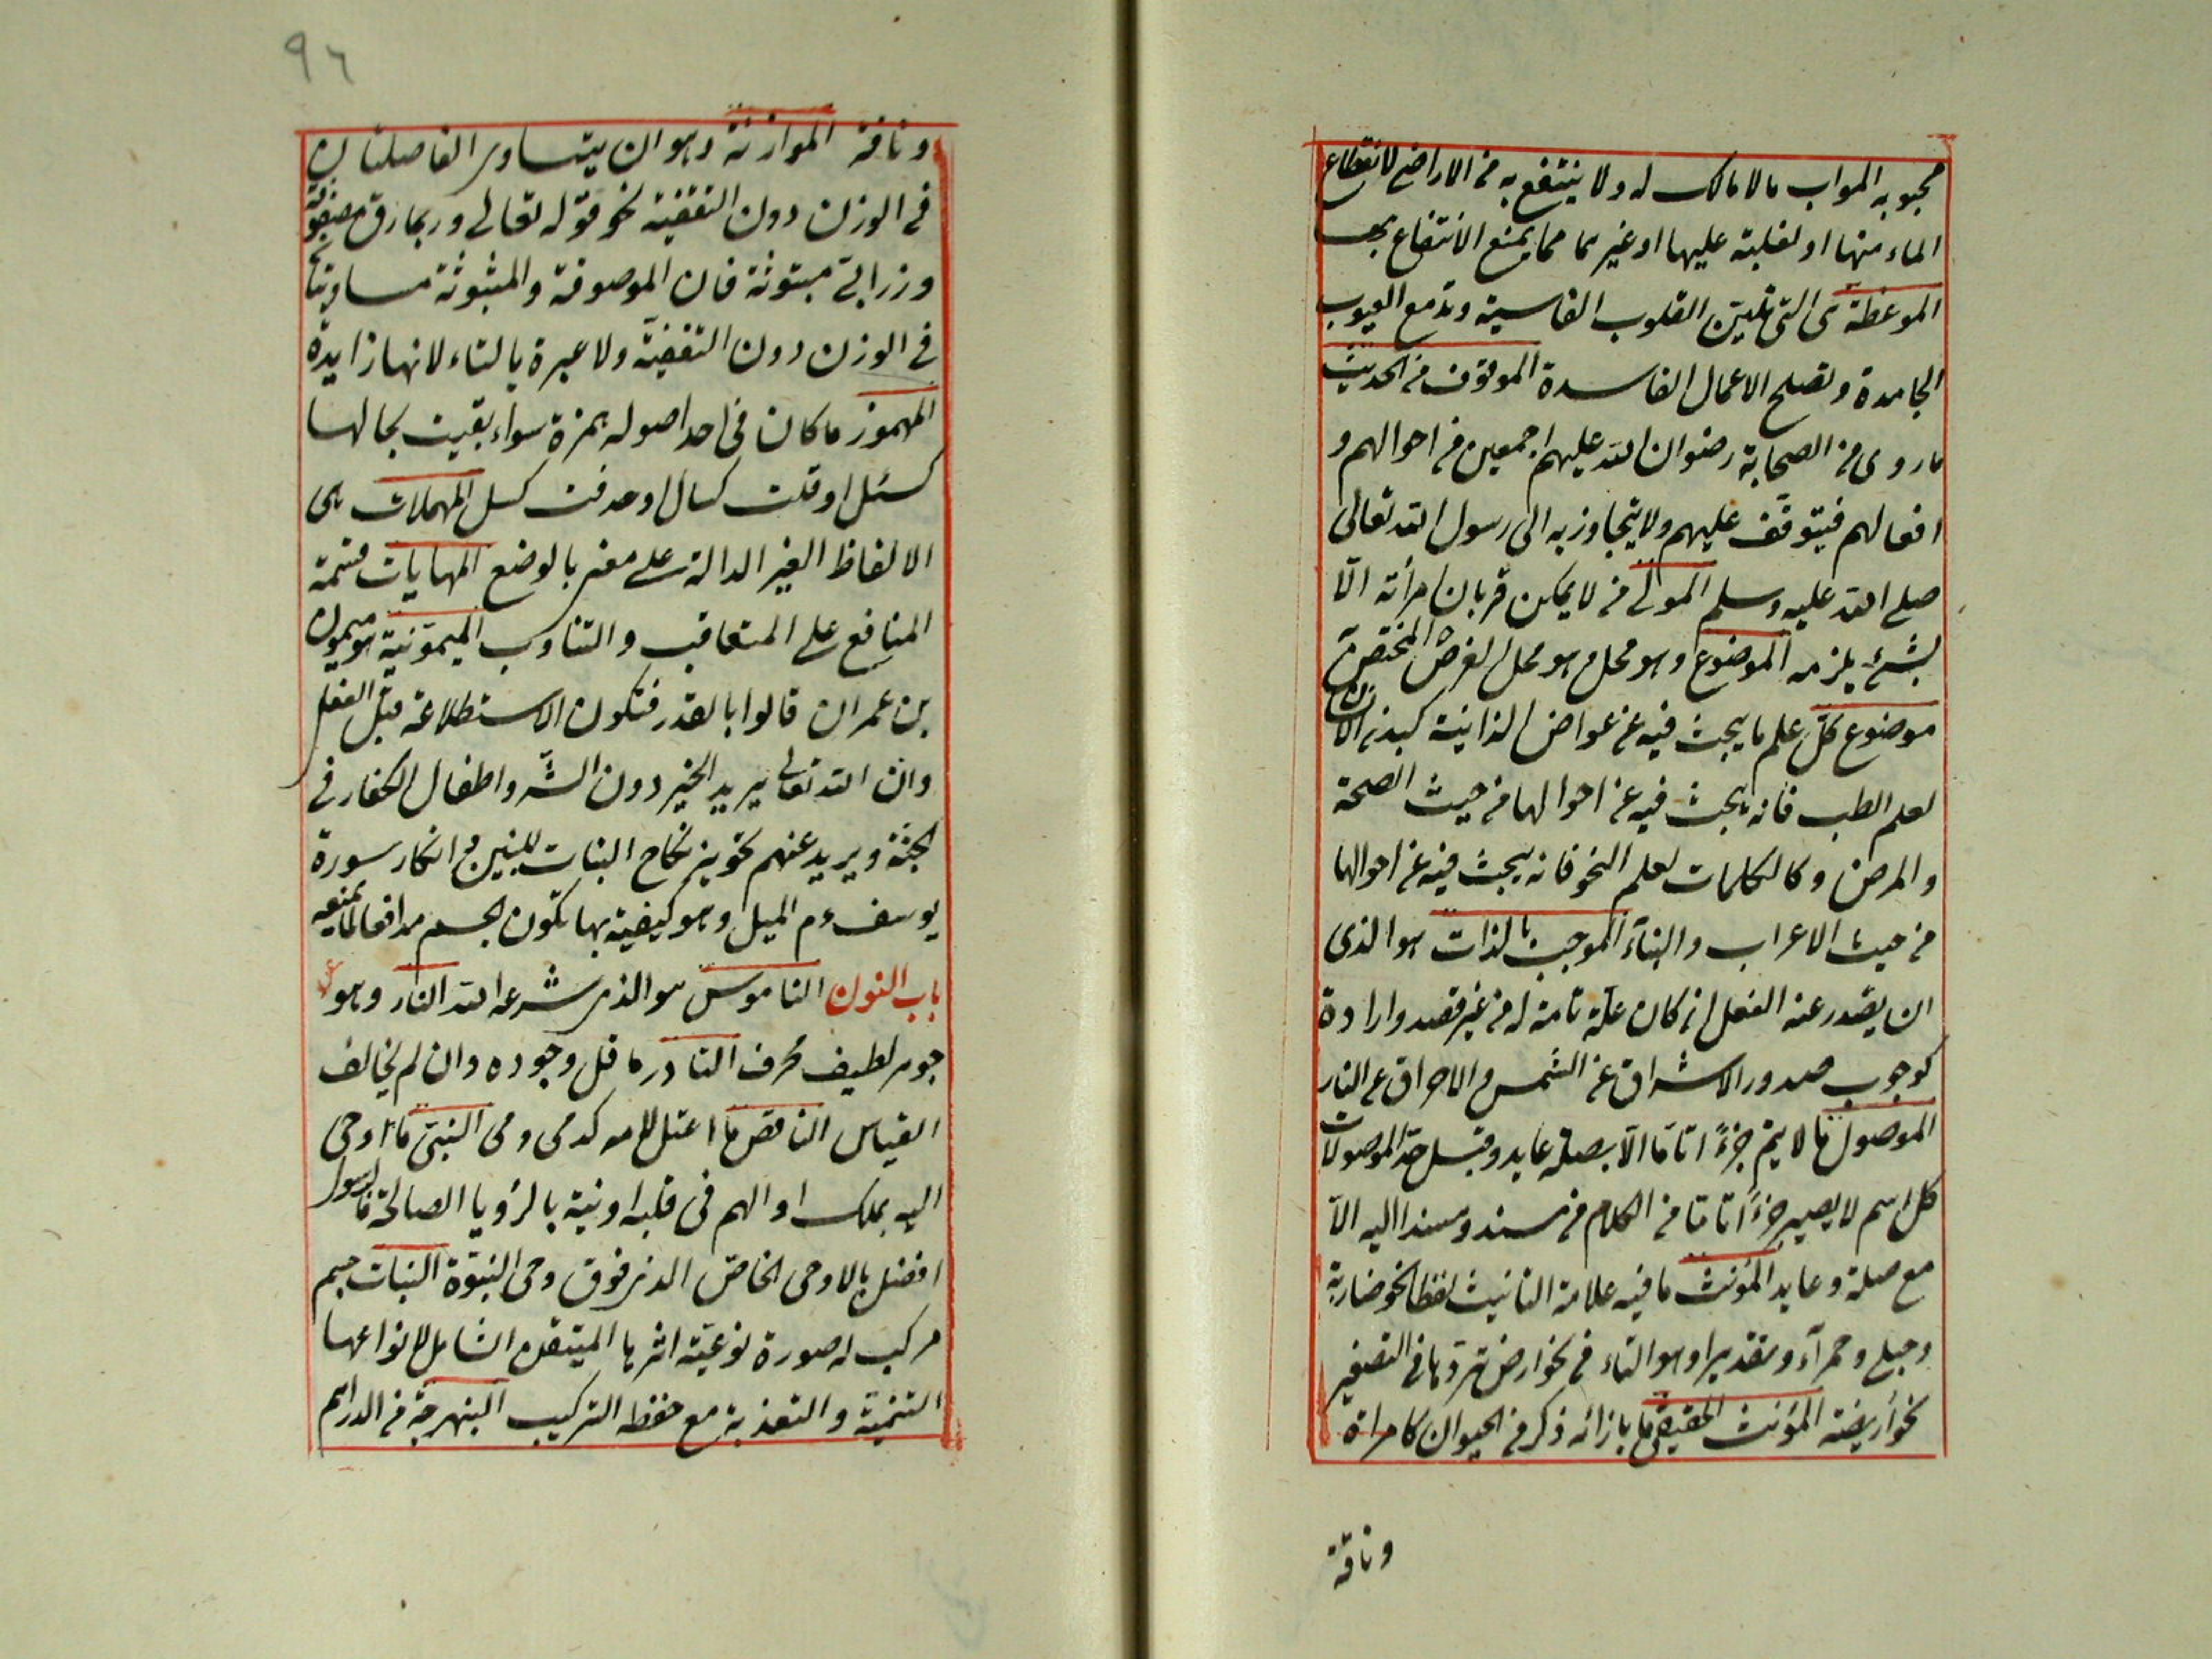 محبوبه الموات ما لا مالك له ولا ينتفع به من الاراضى لانقطاع
الماء منها او لغلبته عليها او غيرهما مما يمنع الانتفاع بها
الموعظة هى التى تلين القلوب القاسية وتدمع العيون
الجامدة وتصلح الاعمال الفاسدة الموقوف من الحديث
ما روى من الصحابة رضوان الله عليهم اجمعين من احوالهم و
افعالهم فيتوقف عليهم ولا يتجاوز به الى رسول الله تعالى
صلى الله عليه وسلم المولى من لا يمكن قربان امرأته الا
بشئ يلزمه الموضوع وهو محل وهو محل لعرض المختص به
موضوع كل علم ما يبحث فيه عن عوارض الذاتية كبدن الانسان
لعلم الطب فانه يبحث فيه عن احوالها من حيث الصحة
والمرض وكالكلمات لعلم النحو فانه يبحث فيه عن احوالها
من حيث الاعراب والبناء الموجب بالذات هو الذى
ان يصدر عنه الفعل ان كان علة تامة له من غير قصد وارادة
كوجوب صدور الاشراق عن الشمس والاحراق عن النار
الموصول ما لا يتم جزءا تاما الا بصلة عايد وقيل حد الموصولات
كل اسم لا يصير جزءا تاما من الكلام من مسند ومسندا اليه الا
مع صلة وعايد المؤنث ما فيه علامة التانيث لفظا نحو ضاربة
وحبلى وحمراء وتقديرا وهو التاء فى نحو ارض تردها فى التصغير
نحو أريضة المؤنث الحقيقى ما بازائه ذكر من الحيوان كامرأة
وناقة
٩٦
وناقة الموازنة وهو ان يتساوى الفاصلتان
فى الوزن دون التقفية نحو قوله تعالى ونمارق مصفوفة
وزرابى مبثوثة فان الموصوفة والمبثوثة مساويتان
فى الوزن دون التقفية ولا عبرة بالتاء لانها زايدة
المهموز ما كان فى احد اصوله همزة سواء بقيت بحالها
كسئل او قلبت كسال او حذفت كسل المهملات هى
الالفاظ الغير الدالة على معنى بالوضع المهايات قسمة
المنافع على المتعاقب والتناوب الميمونية هو ميمون
بن عمران قالوا بالقدر فتكون الاستطلاعة قبل الفعل
وان الله تعالى يريد الخير دون الشر واطفال الكفار فى
الجنة ويريد عنهم تجويز نكاح البنات للبنين وانكار سورة
يوسف ءم الميل وهو كيفية بها تكون الجسم مدافعا لما يمنعه
باب النون الناموس هو الذى شرعه الله النار وهو
جوهر لطيف محرف النادر ما قل وجوده وان لم يخالف
القياس الناقص ما اعتل لامه كدمى ومى النبى ما اوحى
اليه بملك او الهم فى قلبه او نبه بالرؤيا الصالحة فالرسول
افضل بالاوحى الخاص الذى فوق وحى النبوة النبات جسم
مركب له صورة نوعية اثرها المتيقن الشامل لانواعها
التنمية والتغذية مع حفظ التركيب البنهرجة من الدراهم